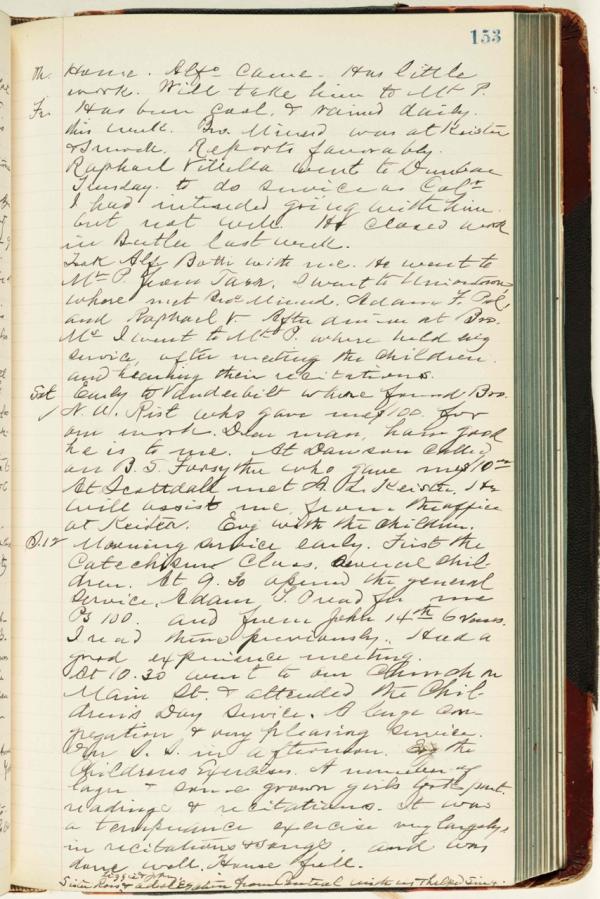 153
Th. Home. Alfo came. Has little
work. Will take him to Mt P.
Fr. Has been cool, & rained daily.
this week. Bro. Minerd was at Keister
& Smock. Reports favorably.
Raphael Vitella went to Dunbar
Tuesday. to do service as Colt
I had intended going with him.
but not well. He closed work
in Butler last week.
Took Alfo Both with me. He went to
Mt. P. from Tarr. I went to Uniontown
where met Bro Minerd, Adam F. Pol,
and Raphael V. After dinner at Bro.
Ms I went to Mt. P. where held evg
service, after meeting the children
and hearing their recitations.
Sat Early to Vanderbilt where found Bro.
N. W. Rist who gave me $100. for
our work. Dear man, how good
he is to me. At Dawson called
on B. S. Forsythe who gave me $10
At Scottdale met A. L. Keister. He
will assist me from the office
at Keister. Evg with the children.
S. 12 Morning service early. First the
Catechism Class. Several chil-
dren. At 9.30 opened the general
service. Adam F. P read for me
Ps 100. and from John 14th 6 verses.
I read them previously. Had a
good experience meeting.
At 10.30 went to our Church on
Main St. & attended the Chil-
drens Day Service. A large con-
gregation & very pleasing service.
Our S. S. in afternoon. Evg the
Childrens Exercises. A number of
larger & some grown girls took part.
readings & recitations. It was
a temperance exercise very largely
in recitations & songs. and was
done well. House full.
Sister Ross & a delegation from Central with us